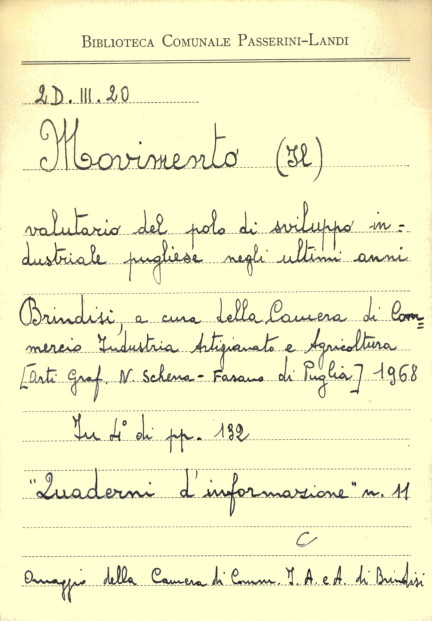 BIBLIOTECA COMUNALE PASSERINI-LANDI
2D. III. 20
Movimento (Il)
valutario del polo di sviluppo in=
dustriale pugliese negli ultimi anni
Brindisi, a cura della Camera di Com=
mercio Industria Artigianato e Agricoltura
[Arti Graf. N. Schena - Fasano di Puglia] 1968
In 4° di pp. 132
"Quaderni d'informazione" n. 11
C
Omaggio della Camera di Comm. I. A. e A. di Brindisi